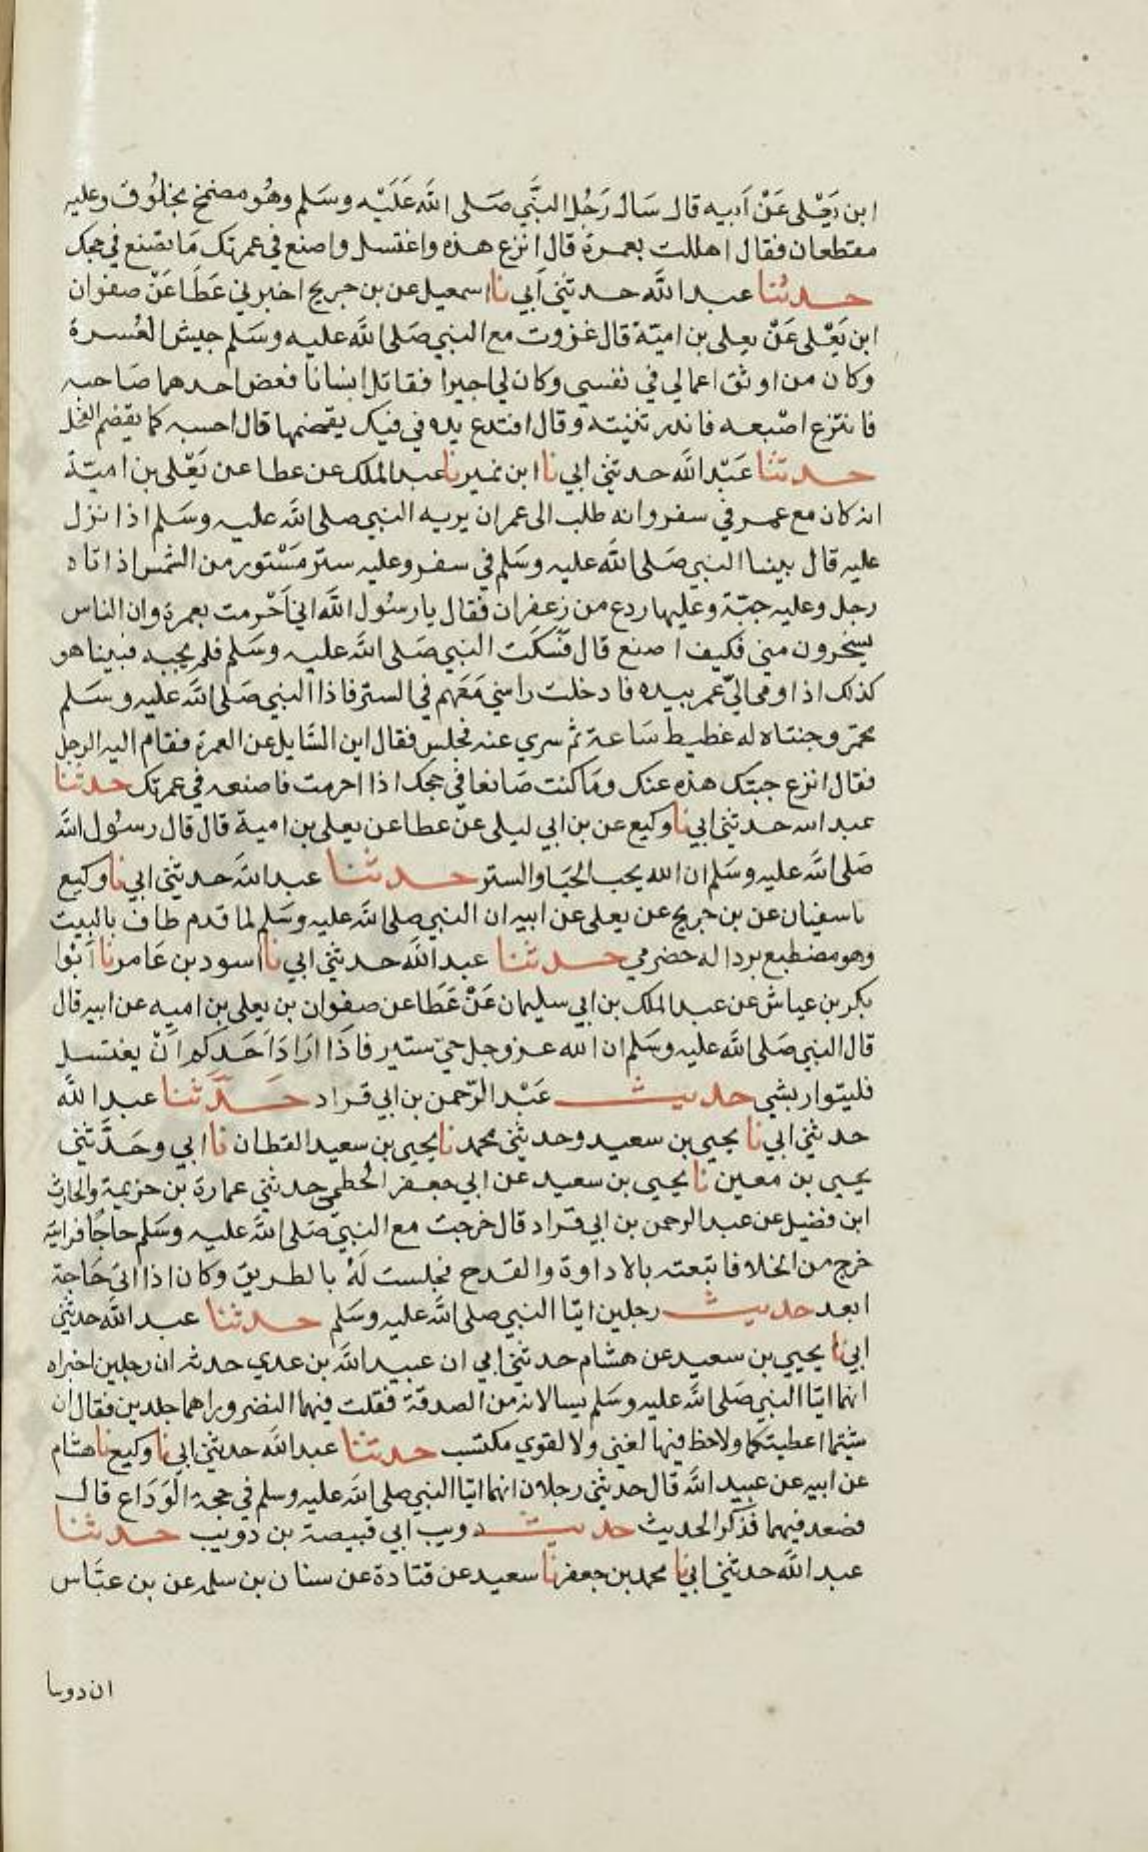 ابن يَعْلى عَنْ اَبيه قال سَال رَجُل النبَّي صَلى الله عَلَيْه وسَلم وهُو مضمخ بخلُوق وعليه
مقطعات فقال اهللت بعمرة قال انزع هذه واغتسل واصنع في عمرتك مَا تصنع في حجك
حدثنا عبد الله حدثني اَبي نا اسمعيل عن بن جريج اخبرني عَطَا عَنْ صفوان
ابن يَعْلى عَنْ يعلى بن امية قال غزوت مع النبي صَلى الله عليه وسَلم جيش العُسرة
وكان من اوثق اعمالي في نفسي وكان لي اجيرا فقاتل انسانا فعض احدهما صَاحبه
فانتزع اصْبعه فاندر ثنيته وقال افتدع يده في فيك يقضمها قال احسبه كما يقضم الفحل
حدثنا عَبْد الله حدثني ابي نا ابن نمير نا عبد الملك عن عطا عن يَعْلى بن امية
انه كان مع عمر في سفر وانه طلب الى عمر ان يريه النبي صلى الله عليه وسَلم اذا نزل
عليه قال بينا النبي صَلى الله عليه وسَلم في سفر وعليه ستر مَسْتور من الشمس اذ اتاه
رجل وعليه جبّة وعليها ردع من زعفران فقال يا رسُول الله اني اَحْرمت بعمرة وان الناس
يسخرون مني فكيف اصنع قال فَسَكَت النبي صَلى الله عليه وسَلم فلم يجبه فبينا هو
كذلك اذ اومى اليّ عمر بيده فادخلت راسي مَعَهم في الستر فاذا النبي صَلى الله عليه وسَلم
محمّر وجنتاه له غطيط سَاعة ثم سري عنه فجلس فقال اين السَّايل عن العمرة فقام اليه الرجل
فقال انزع جبتك هذه عنك ومَا كنت صَانعا في حجك اذا احرمت فاصنعه في عمرتك حدثنا
عبد الله حدثني ابي نا وكيع عن بن ابي ليلى عن عطا عن يعلى بن امية قال قال رسُول الله
صَلى الله عليه وسَلم ان الله يحب الحَيا والستر حدثنا عبد الله حدثني ابي نا وكيع
نا سفيان عن بن جريج عن يعلى عن ابيه ان النبي صلى الله عليه وسَلم لما قدم طاف بالبيت
وهو مضطبع بردا له حضرمي حدثنا عبد الله حدثني ابي نا اسود بن عَامر نا اَبُوا
بكر بن عياش عن عبد الملك بن ابي سليمان عَنْ عَطَا عن صفوان بن يعلى بن اميه عن ابيه قال
قال النبي صَلى الله عليه وسَلم ان الله عز وجل حيّ ستير فاذَا ارَادَ اَحَدكم اَنْ يغتسل
فليتوار بشي حديث عَبْد الرّحمن بن ابي قراد حَدَّثنا عبد الله
حدثني ابي نا يحيى بن سعيد وحدثني محمد نا يحيى بن سعيد القطان نا ابي وحَدَّثني
يحيى بن معين نا يحيى بن سعيد عن ابي جعفر الخُطمي حدثني عمارة بن خزيمة والحارث
ابن فضيل عن عبد الرحمن بن ابي قراد قال خرجت مع النبيّ صَلى الله عليه وسَلم حاجًا فرايته
خرج من الخلا فاتبعته بالاداوة والقدح فجلست لَهُ بالطريق وكان اذا اتى حَاجة
ابعد حديث رجلين اتيا النبي صلى الله عليه وسَلم حدثنا عبد الله حدثني
ابي نا يحيى بن سعيد عن هشام حدثني ابي ان عبيد الله بن عدي حدثه ان رجلين اخبراه
انهما اتيا النبي صَلى الله عليه وسَلم يسالانه من الصدقة فقلت فيهما النضر وراهما جلدين فقال ان
شيتما اعطيتكما ولاحظ فيها لغني ولا لقوي مكتسب حدثنا عبد الله حدثني ابي نا وكيع نا هشام
عن ابيه عن عبيد الله قال حدثني رجلان انهما اتيا النبي صلى الله عليه وسلم في حجة الوَدَاع قال
فصعد فيهما فذكر الحديث حديث دويب ابي قبيصة بن دويب حدثنا
عبد الله حدثني ابي نا محمد بن جعفر نا سعيد عن قتادة عن سنان بن سلمه عن بن عبّاس
ان دويبا